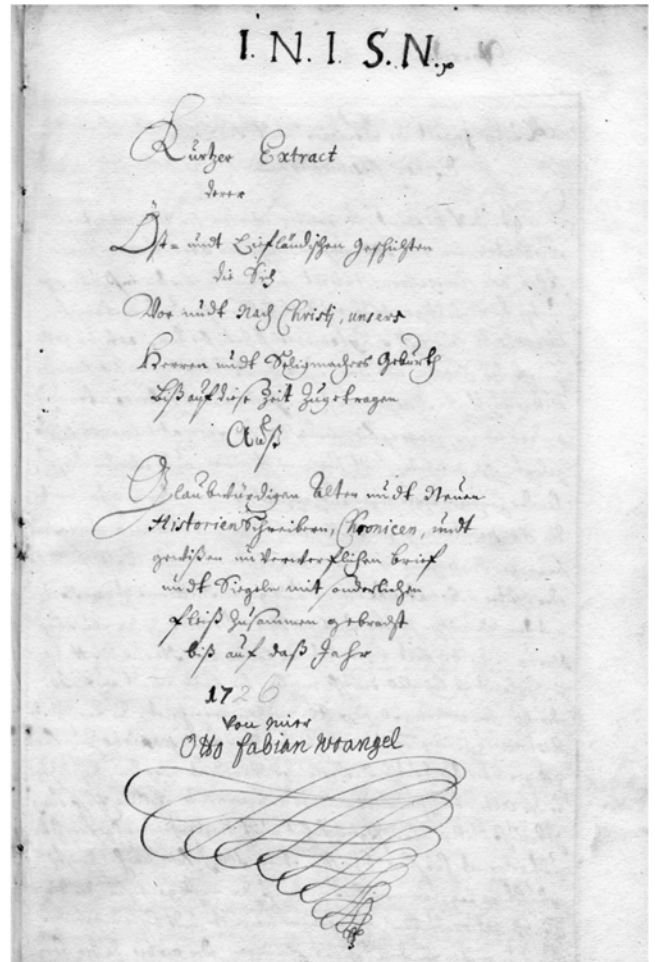 I. N. I. S. N.
Kurtzer Extract
derer
Ost= undt Lieffländischen Geschichten
die Sich
Vor undt Nach Christj, unsers
Herren undt Seligmachers Geburth
biß auf diese Zeit Zugetragen
Auß
Glaubwürdigen Alten undt Neuen
Historien Schreibern, Chronicen, undt
gewißen unverwerflichen brief
undt Siegeln mit sonderlichen
fleiß Zusammen gebracht
biß auf daß Jahr
1726
von mier
Otto fabian Wrangel